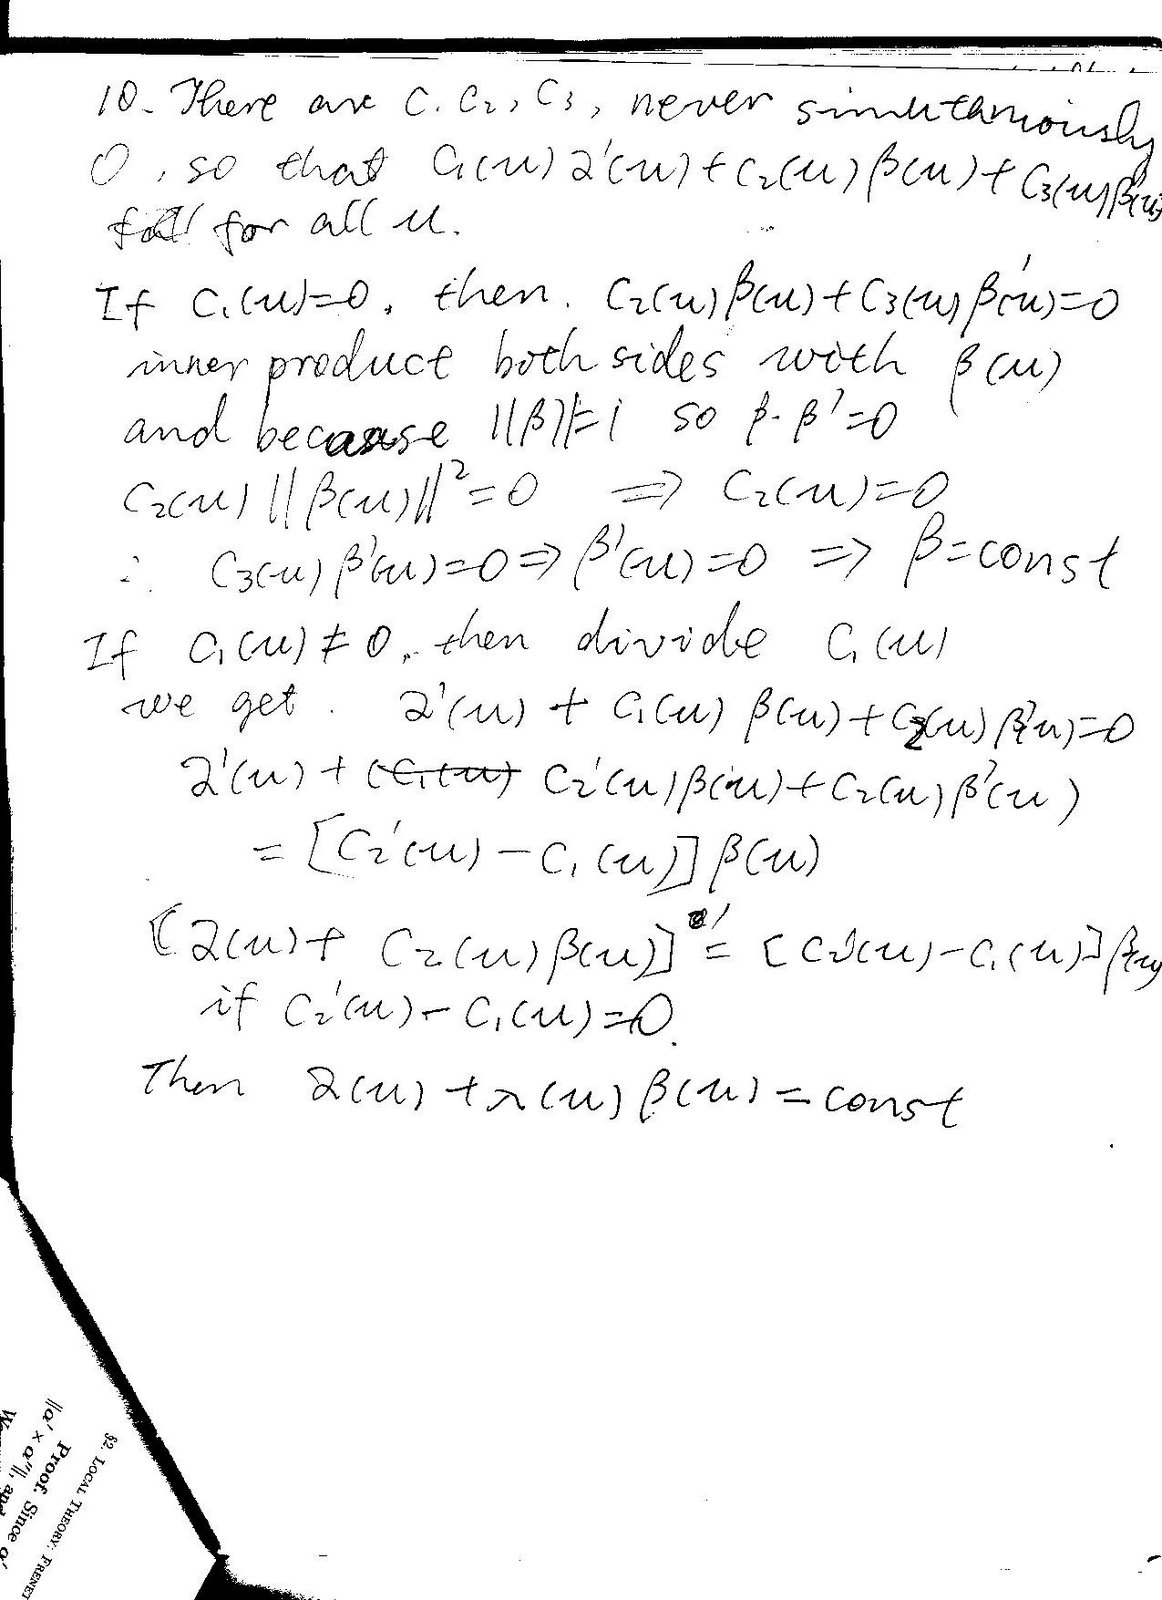 10. There are C. C2, C3, never simultaniously
0, so that C1(u)α'(u)+C2(u)β(u)+C3(u)β'(u)
for all u.
If C1(u)=0, then. C2(u)β(u)+C3(u)β'(u)=0
inner product both sides with β(u)
and because ||β||=1 so β·β'=0
C2(u)||β(u)||²=0 ⇒ C2(u)=0
∴ C3(u)β'(u)=0⇒β'(u)=0 ⇒ β=const
If C1(u)≠0, then divide C1(u)
we get. α'(u) + C1(u) β(u)+C2(u)β'(u)=0
α'(u)+ C2'(u)β(u)+C2(u)β'(u)
=[C2'(u)-C1(u)]β(u)
[α(u)+ C2(u)β(u)]'=[C2'(u)-C1(u)]β(u)
if C2'(u)-C1(u)=0.
Then α(u)+λ(u)β(u)=const
§2. LOCAL THEORY: FRENET
Proof. Since α'
||α' × α''||, and